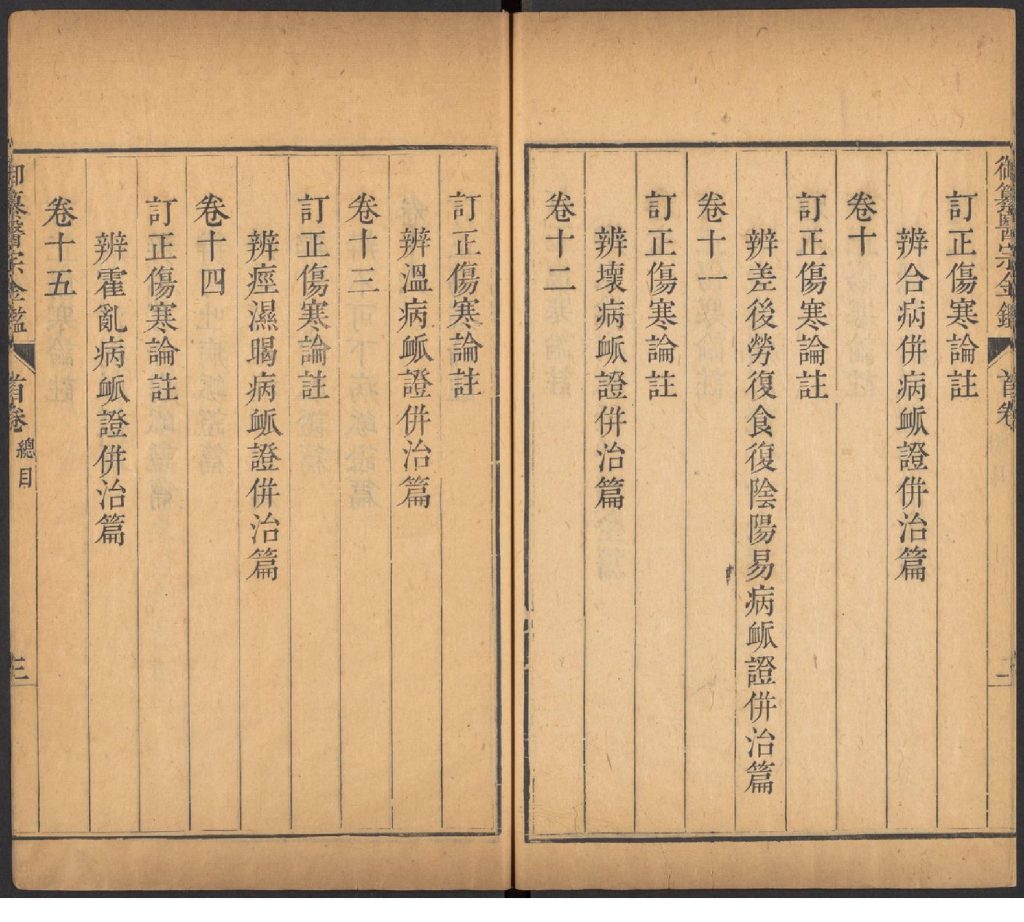 御纂醫宗金鑑 首卷 二
訂正傷寒論註
辨合病併病䘑證併治篇
卷十
訂正傷寒論註
辨差後勞復食復陰陽易病䘑證併治篇
卷十一
訂正傷寒論註
辨壞病䘑證併治篇
卷十二
訂正傷寒論註
辨溫病䘑證併治篇
卷十三
訂正傷寒論註
辨痙濕暍病䘑證併治篇
卷十四
訂正傷寒論註
辨霍亂病䘑證併治篇
卷十五
御纂醫宗金鑑 首卷 總目 三